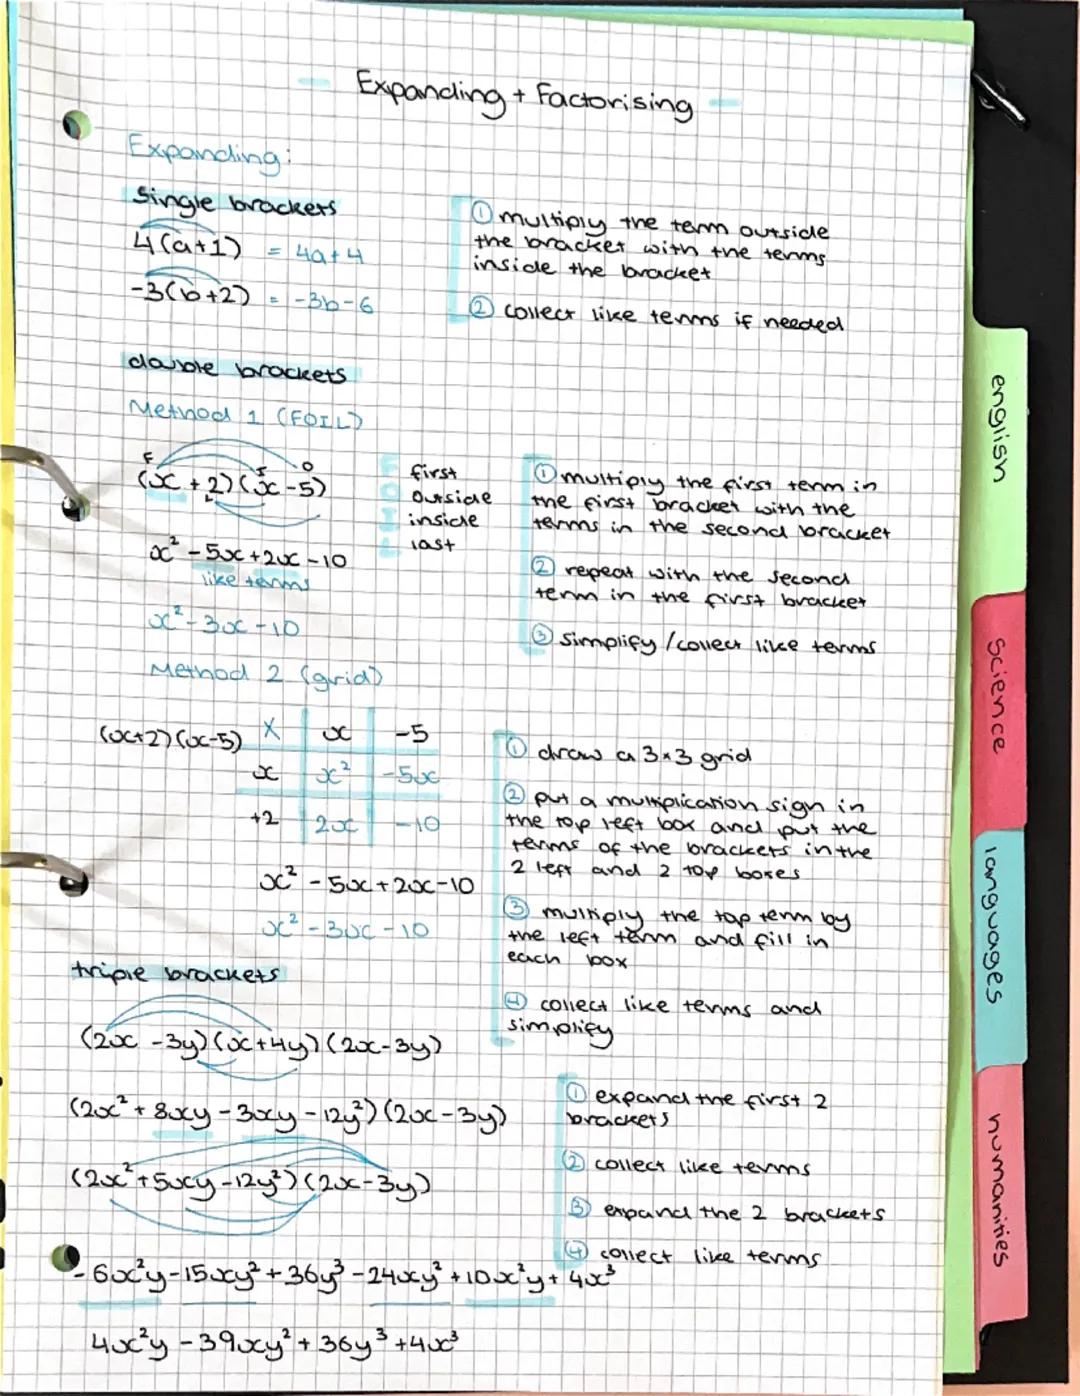 Expanding + Factorising
Expanding:
Single brackets
4(a+1) = 4a+4
-3(b+2) = -3b-6
① multiply the term outside
the bracket with the terms
inside the bracket
② collect like terms if needed
double brackets
Method 1 (FOIL)
F I O
(x+2)(x-5)
L
x² - 5x + 2x - 10
like terms
x² - 3x - 10
first
outside
inside
last
① multiply the first term in
the first bracket with the
terms in the second bracket
② repeat with the second
term in the first bracket
③ simplify / collect like terms
Method 2 (grid)
(x+2)(x-5)
X x -5
x x² -5x
+2 2x -10
x² - 5x + 2x - 10
x² - 3x - 10
① draw a 3×3 grid
② put a multiplication sign in
the top left box and put the
terms of the brackets in the
2 left and 2 top boxes
③ multiply the top term by
the left term and fill in
each box
④ collect like terms and
simplify
triple brackets
(2x - 3y)(x+4y)(2x-3y)
(2x² + 8xy - 3xy - 12y²)(2x-3y)
(2x² + 5xy - 12y²)(2x-3y)
- 6x²y - 15xy² + 36y³ - 24xy² + 10x²y + 4x³
4x²y - 39xy² + 36y³ + 4x³
① expand the first 2
brackets
② collect like terms
③ expand the 2 brackets
④ collect like terms
english
Science
languages
humanities